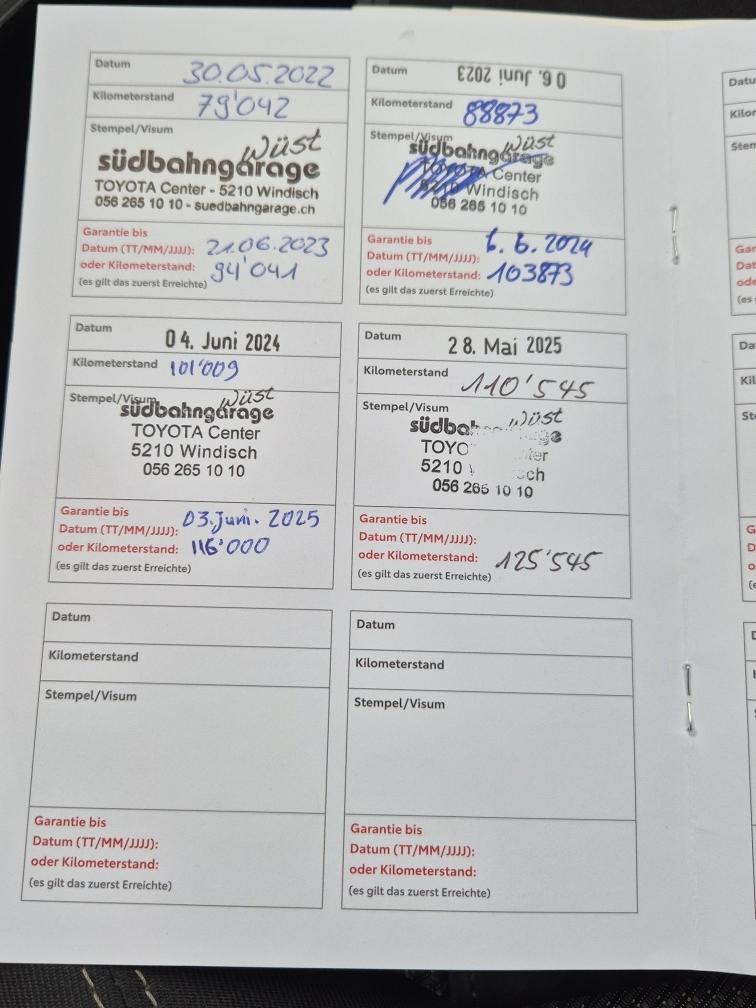 Datum 30.05.2022
Kilometerstand 79'042
Stempel/Visum
Wüst
südbahngarage
TOYOTA Center - 5210 Windisch
056 265 10 10 - suedbahngarage.ch
Garantie bis
Datum (TT/MM/JJJJ): 21.06.2023
oder Kilometerstand: 94'041
(es gilt das zuerst Erreichte)
Datum 06. Juni 2023
Kilometerstand 88873
Stempel/Visum
Wüst
südbahngarage
TOYOTA Center
5210 Windisch
056 265 10 10
Garantie bis
Datum (TT/MM/JJJJ): 6.6.2024
oder Kilometerstand: 103873
(es gilt das zuerst Erreichte)
Datum 04. Juni 2024
Kilometerstand 101'009
Stempel/Visum
Wüst
südbahngarage
TOYOTA Center
5210 Windisch
056 265 10 10
Garantie bis
Datum (TT/MM/JJJJ): 03. Juni. 2025
oder Kilometerstand: 116'000
(es gilt das zuerst Erreichte)
Datum 28. Mai 2025
Kilometerstand 110'545
Stempel/Visum
Wüst
5210
056 265 10 10
Garantie bis
Datum (TT/MM/JJJJ):
oder Kilometerstand: 125'545
(es gilt das zuerst Erreichte)
Datum
Kilometerstand
Stempel/Visum
Garantie bis
Datum (TT/MM/JJJJ):
oder Kilometerstand:
(es gilt das zuerst Erreichte)
Datum
Kilometerstand
Stempel/Visum
Garantie bis
Datum (TT/MM/JJJJ):
oder Kilometerstand:
(es gilt das zuerst Erreichte)